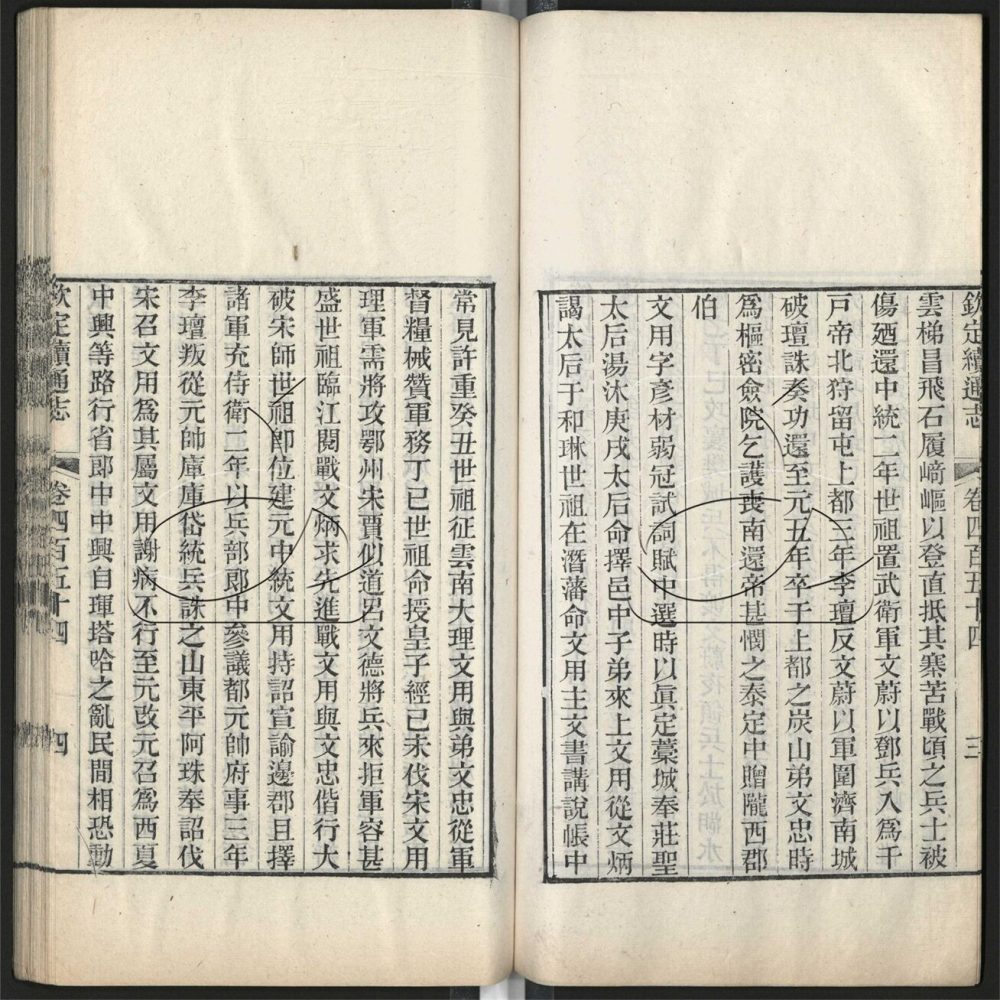 欽定續通志 卷四百五十四 三
雲梯昌飛石履﨑嶇以登直抵其寨苦戰頃之兵士被
傷廼還中統二年世祖置武衛軍文蔚以鄧兵入爲千
戸帝北狩留屯上都三年李璮反文蔚以軍圍濟南城
破璮誅奏功還至元五年卒于上都之炭山弟文忠時
爲樞密僉院乞護喪南還帝甚憫之泰定中贈隴西郡
伯
文用字彥材弱冠試詞賦中選時以眞定藁城奉莊聖
太后湯沐庚戌太后命擇邑中子弟來上文用從文炳
謁太后于和琳世祖在潛藩命文用主文書講說帳中
常見許重癸丑世祖征雲南大理文用與弟文忠從軍
督糧械贊軍務丁巳世祖命授皇子經已未伐宋文用
理軍需將攻鄂州宋賈似道呂文德將兵來拒軍容甚
盛世祖臨江閱戰文炳求先進戰文用與文忠偕行大
破宋師世祖卽位建元中統文用持詔宣諭邊郡且擇
諸軍充侍衛二年以兵部郎中參議都元帥府事三年
李璮叛從元帥庫庫岱統兵誅之山東平阿珠奉詔伐
宋召文用爲其屬文用謝病不行至元改元召爲西夏
中興等路行省郎中中興自琿塔哈之亂民間相恐動
欽定續通志 卷四百五十四 四